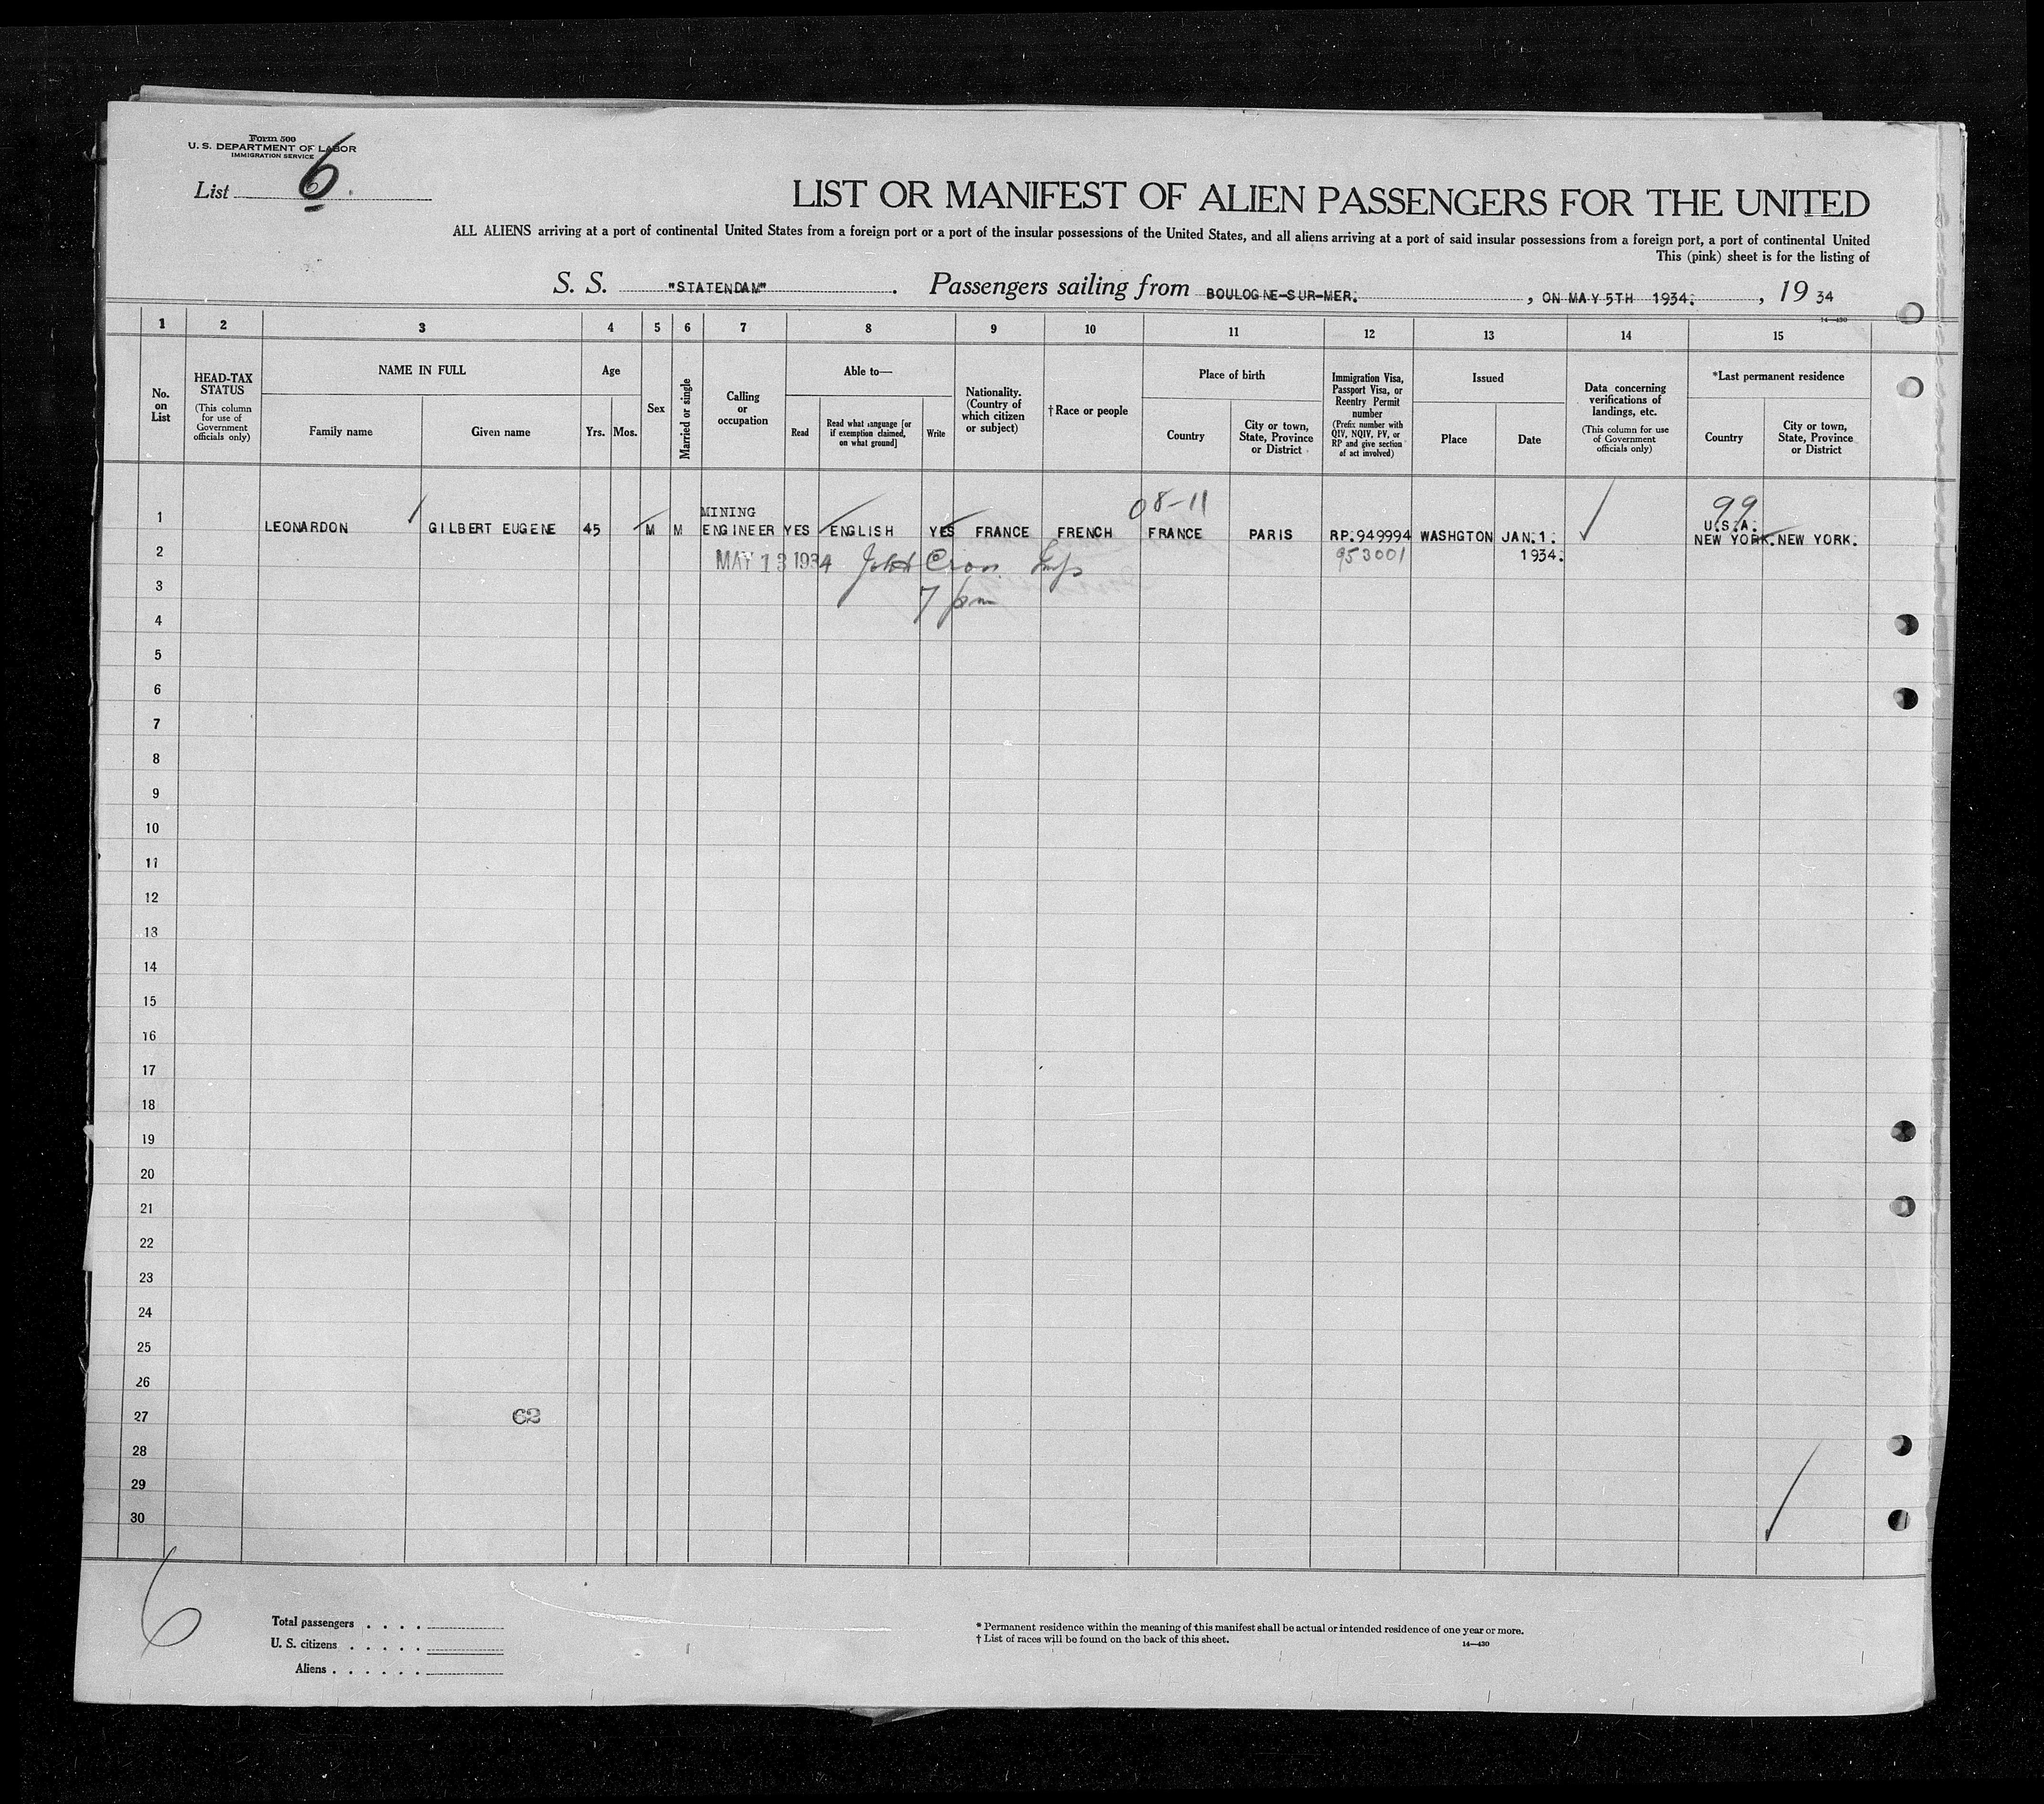 Form 500
U. S. DEPARTMENT OF LABOR
IMMIGRATION SERVICE
List 6
LIST OR MANIFEST OF ALIEN PASSENGERS FOR THE UNITED
ALL ALIENS arriving at a port of continental United States from a foreign port or a port of the insular possessions of the United States, and all aliens arriving at a port of said insular possessions from a foreign port, a port of continental United
This (pink) sheet is for the listing of
S. S. "STATENDAM". Passengers sailing from BOULOGNE-SUR-MER. , ON MAY 5TH 1934. , 19 34
14—430
1 2 3 4 5 6 7 8 9 10 11 12 13 14 15
No. on List
HEAD-TAX STATUS
(This column for use of Government officials only)
NAME IN FULL
Family name
Given name
Age
Yrs. Mos.
Sex
Married or single
Calling or occupation
Able to—
Read
Read what language [or if exemption claimed, on what ground]
Write
Nationality. (Country of which citizen or subject)
† Race or people
Place of birth
Country
City or town, State, Province or District
Immigration Visa, Passport Visa, or Reentry Permit number
(Prefix number with QIV, NQIV, PV, or RP and give section of act involved)
Issued
Place
Date
Data concerning verifications of landings, etc.
(This column for use of Government officials only)
*Last permanent residence
Country
City or town, State, Province or District
08-11
99
MINING
U.S.A.
1 LEONARDON GILBERT EUGENE 45 M M ENGINEER YES ENGLISH YES FRANCE FRENCH FRANCE PARIS RP.949994 WASHGTON JAN.1. NEW YORK. NEW YORK.
2 MAY 13 1934 953001 1934.
3 7 pm
4
5
6
7
8
9
10
11
12
13
14
15
16
17
18
19
20
21
22
23
24
25
26
27 62
28
29
30
6
Total passengers . . . .
U. S. citizens . . . . .
Aliens . . . . . .
* Permanent residence within the meaning of this manifest shall be actual or intended residence of one year or more.
† List of races will be found on the back of this sheet.
14—430